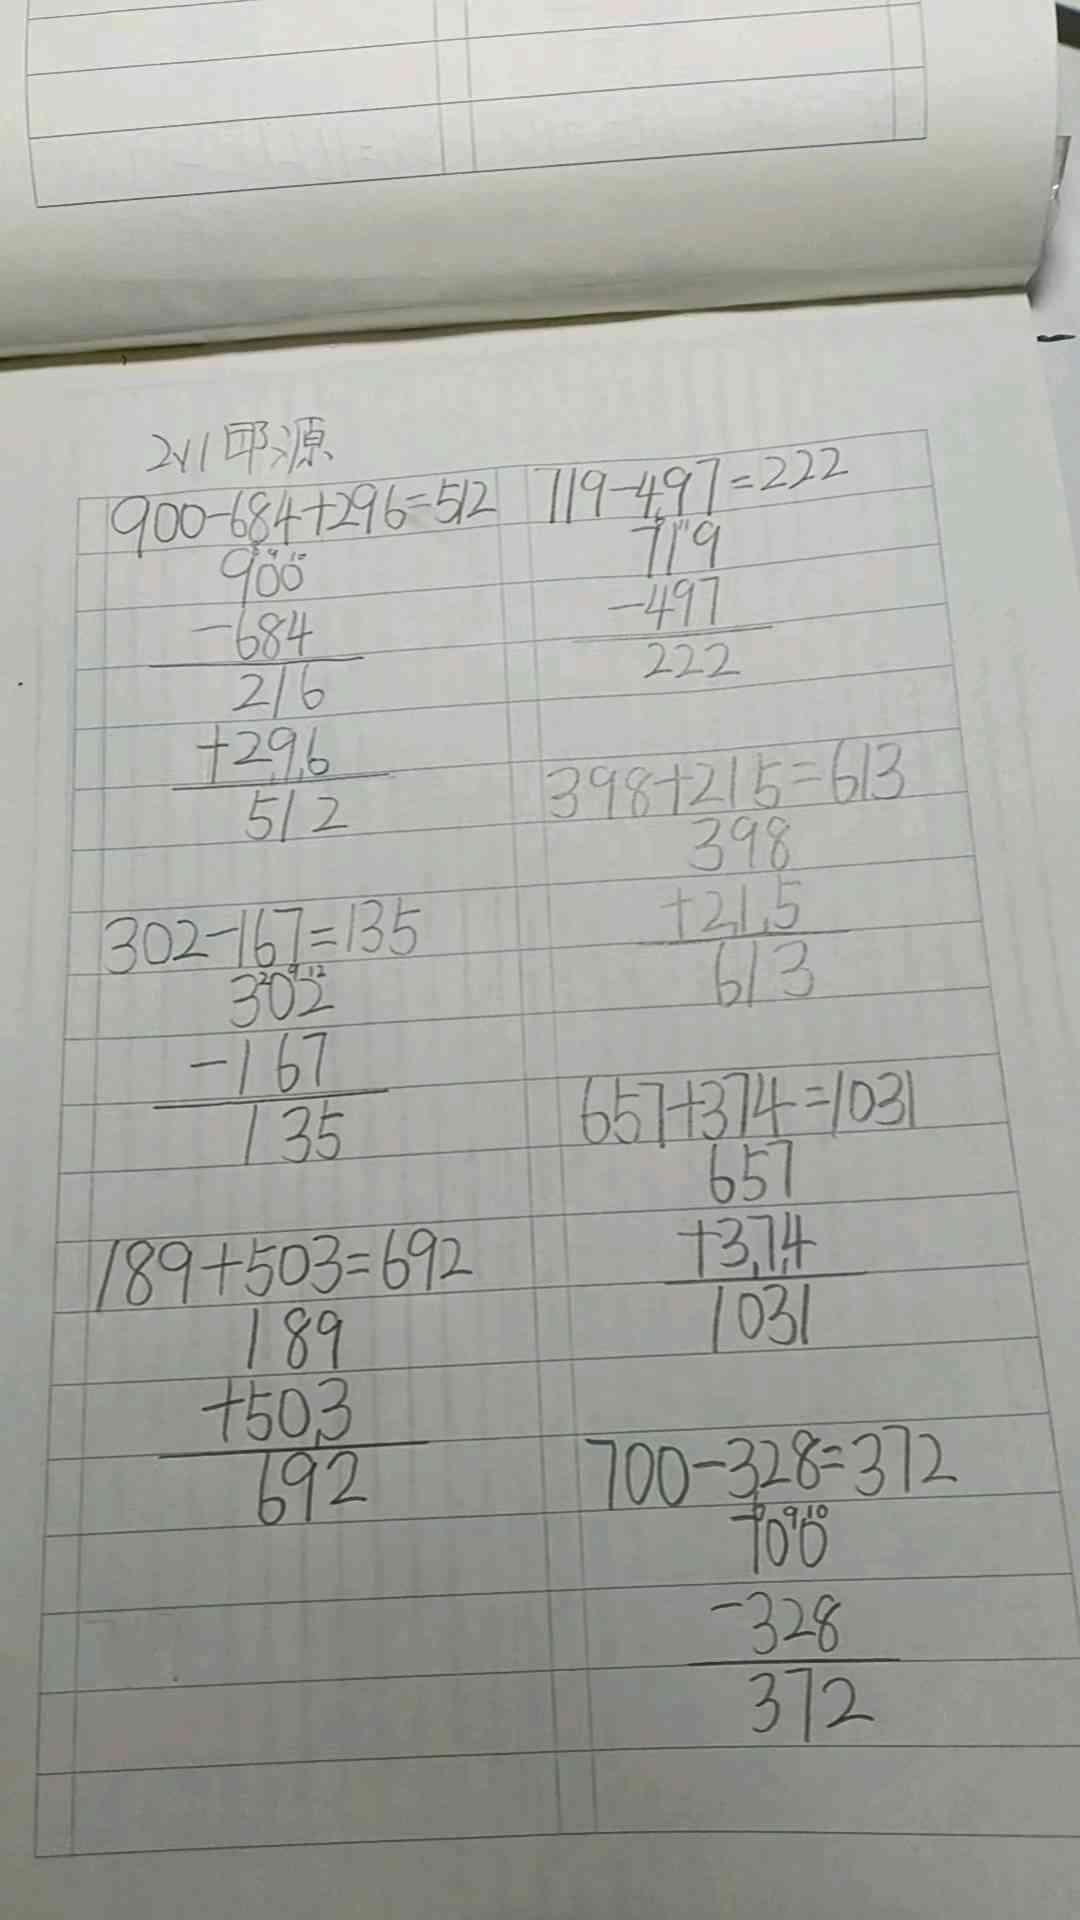 2y1邱源
900-684+296=512
8 9 10
900
-684
216
+296
512
302-167=135
2 9 12
302
-167
135
189+503=692
189
+503
692
719-497=222
6 11
719
-497
222
398+215=613
398
+215
613
657+374=1031
657
+374
1031
700-328=372
6 9 10
700
-328
372